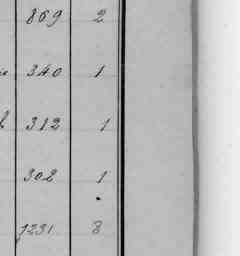 869 2
340 1
312 1
302 1
1231 8